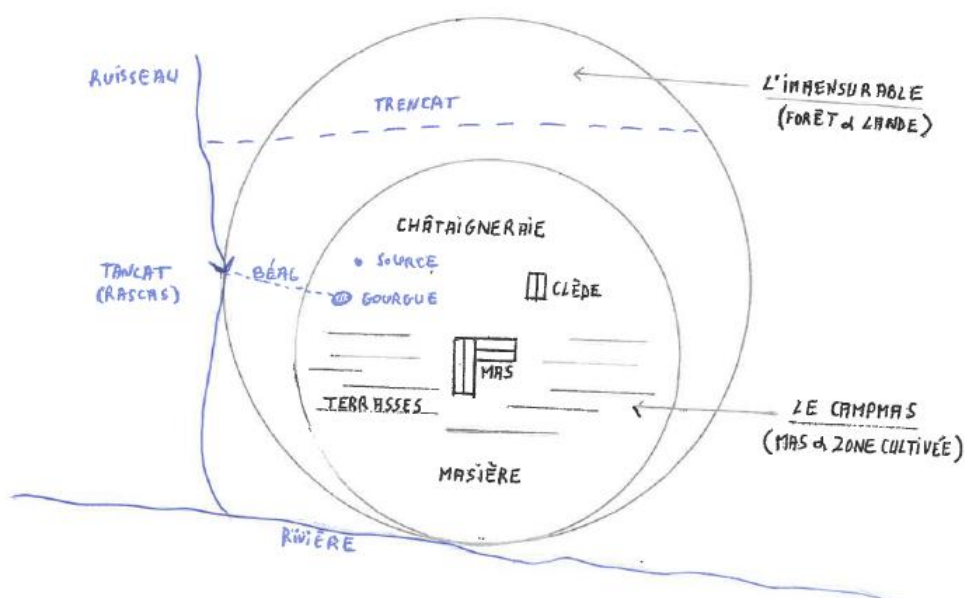 RUISSEAU
TRENCAT
L'IMMENSURABLE
(FORÊT & LANDE)
CHÂTAIGNERAIE
SOURCE
BÉAL
TANCAT
(RASCAS)
GOURGUE
CLÈDE
MAS
TERRASSES
LE CAMPMAS
(MAS & ZONE CULTIVÉE)
MASIÈRE
RIVIÈRE